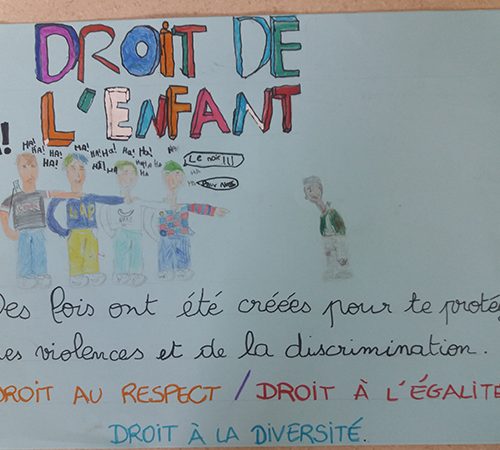 DROIT DE
L'ENFANT
HA! HA! HA! HA! HA! HA! HA! HA!
HA! HA
Le noir!!!
Des lois ont été créées pour te proté
es violences et de la discrimination.
DROIT AU RESPECT / DROIT À L'ÉGALITÉ
DROIT À LA DIVERSITÉ.